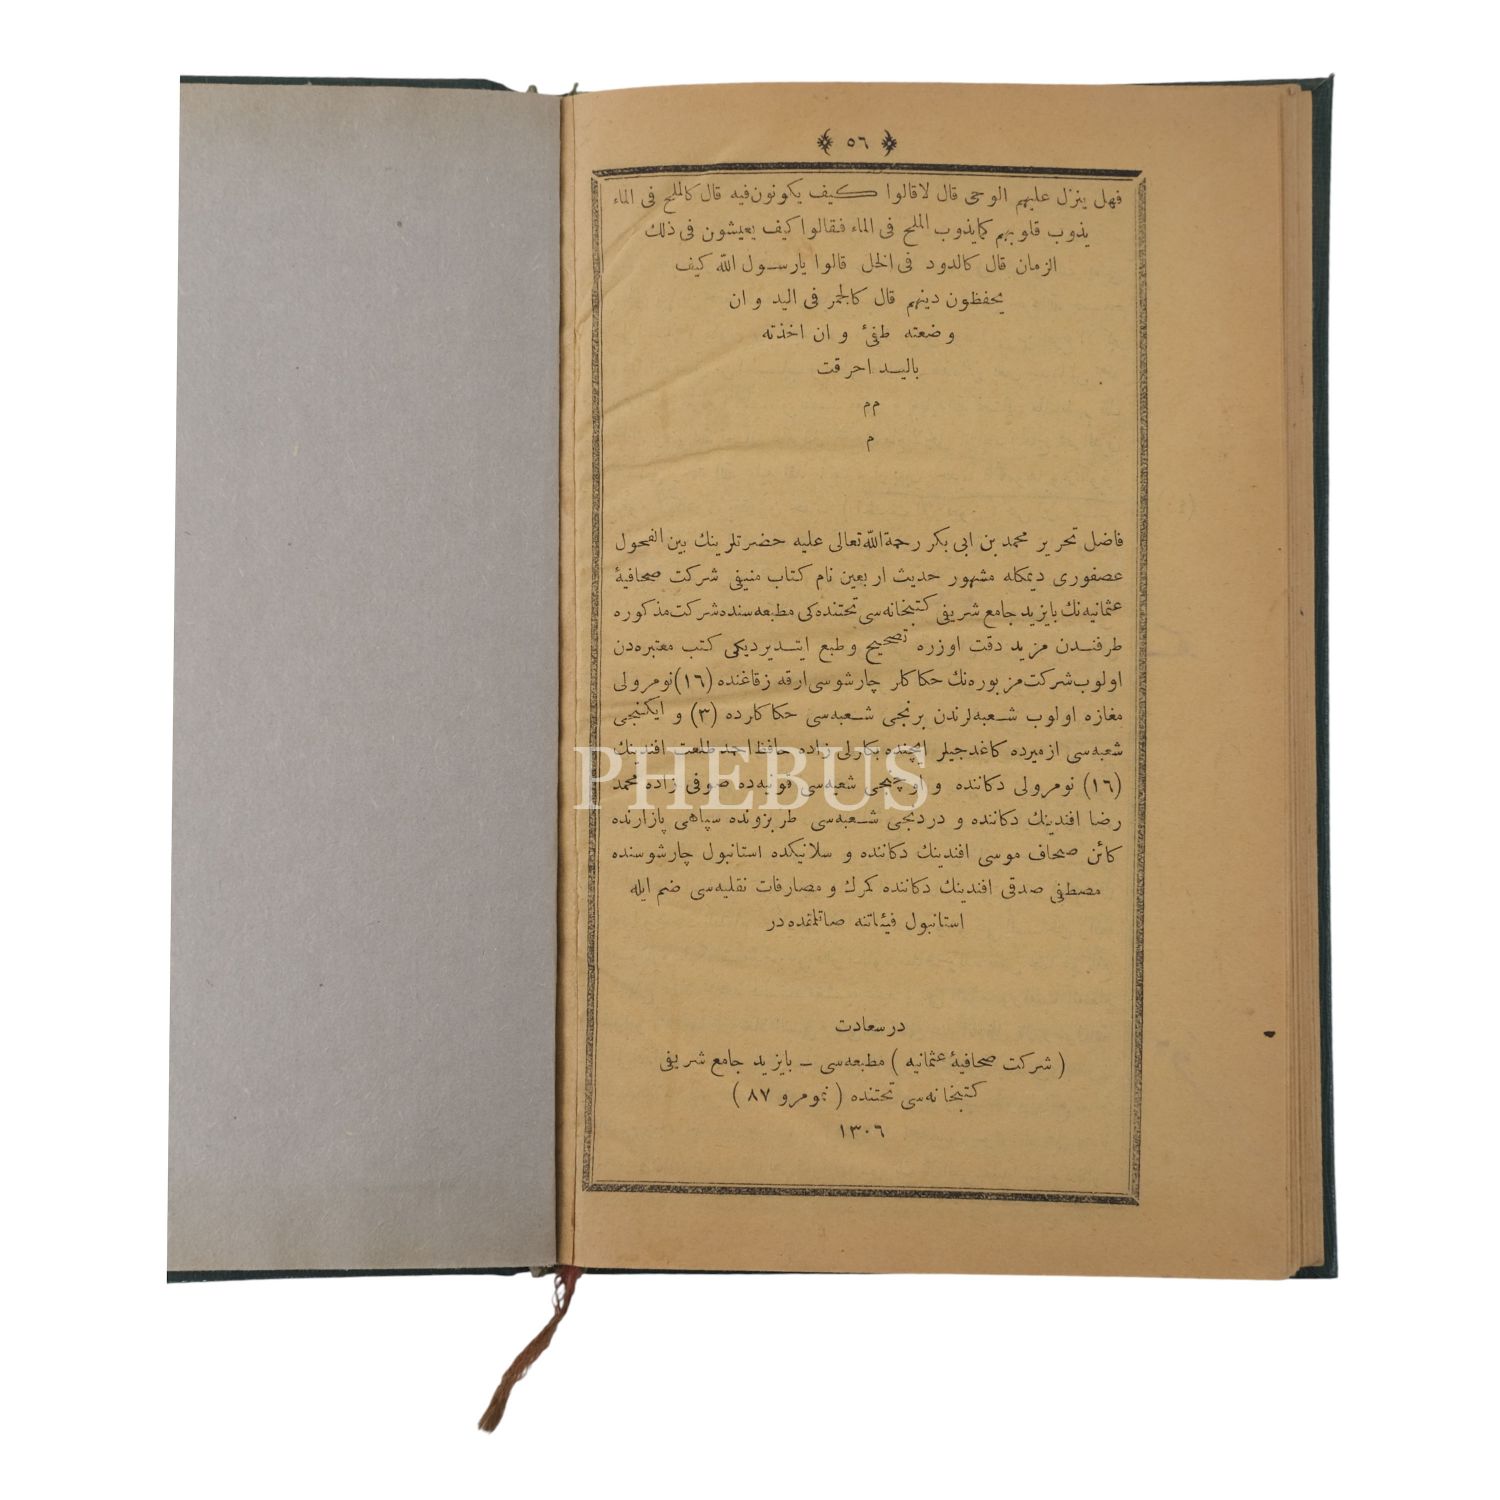 ٥٦
فهل ينزل عليهم الوحى قال لا قالوا كيف يكونون فيه قال كالملح فى الماء
يذوب قلوبهم كما يذوب الملح فى الماء فقالوا كيف يعيشون فى ذلك
الزمان قال كالدود فى الخل قالوا يارسول الله كيف
يحفظون دينهم قال كالجمر فى اليد و ان
وضعته طفئ و ان اخذته
باليد احرقت
مم
م
فاضل تحرير محمد بن ابى بكر رحمة الله تعالى عليه حضرتلرينك بين الفحول
عصفورى ديمكله مشهور حديث اربعين نام كتاب منيفى شركت صحافيۀ
عثمانيه‌نك بايزيد جامع شريفى كتبخانه‌سى تحتنده‌كى مطبعه‌سنده شركت مذكوره
طرفندن مزيد دقت اوزره تصحيح وطبع ايتديرديكى كتب معتبره‌دن
اولوب شركت مزبوره‌نك حكاكلر چارشوسى ارقه زقاغنده (١٦) نومرولى
مغازه اولوب شعبه‌لرندن برنجى شعبه‌سى حكاكلرده (٣) و ايكنجى
شعبه‌سى ازميرده كاغدجيلر ايچنده بكارلى زاده حافظ احمد طلعت افندينك
(١٦) نومرولى دكاننده و اوچنجى شعبه‌سى قونيه‌ده صوفى زاده محمد
رضا افندينك دكاننده و دردنجى شعبه‌سى طربزونده سپاهى پازارنده
كائن صحاف موسى افندينك دكاننده و سلانيكده استانبول چارشوسنده
مصطفى صدقى افندينك دكاننده كمرك و مصارفات نقليه‌سى ضم ايله
استانبول فيئاتنه صاتلمقده‌در
درسعادت
(شركت صحافيۀ عثمانيه) مطبعه‌سى – بايزيد جامع شريفى
كتبخانه‌سى تحتنده (نومرو ٨٧)
١٣٠٦
PHEBUS